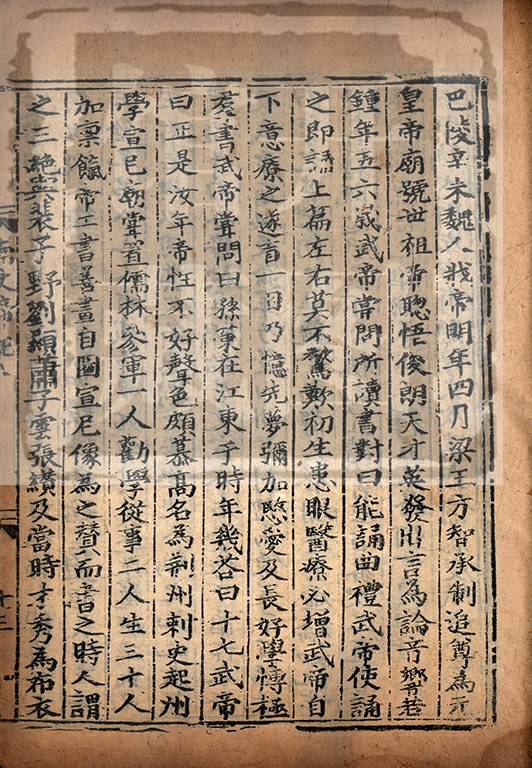 巴陵辛未魏人戕帝明年四月梁王方智承制追尊為元
皇帝廟號世祖帝聰悟俊朗天才英發出言為論音響若
鍾年五六歲武帝嘗問所讀書對曰能誦曲禮武帝使誦
之即誦上篇左右莫不驚歎初生患眼醫療必增武帝自
下意療之遂盲一目乃憶先夢彌加愍愛及長好學博極
羣書武帝嘗問曰孫策在江東于時年幾荅曰十七武帝
曰正是汝年帝性不好聲色頗慕高名為荊州刺史起州
學宣尼廟嘗置儒林參軍一人勸學從事二人生三十人
加稟餼帝工書善畫自圖宣尼像為之贊而書之時人謂
之三絕與裴子野劉顯蕭子雲張纘及當時才秀為布衣